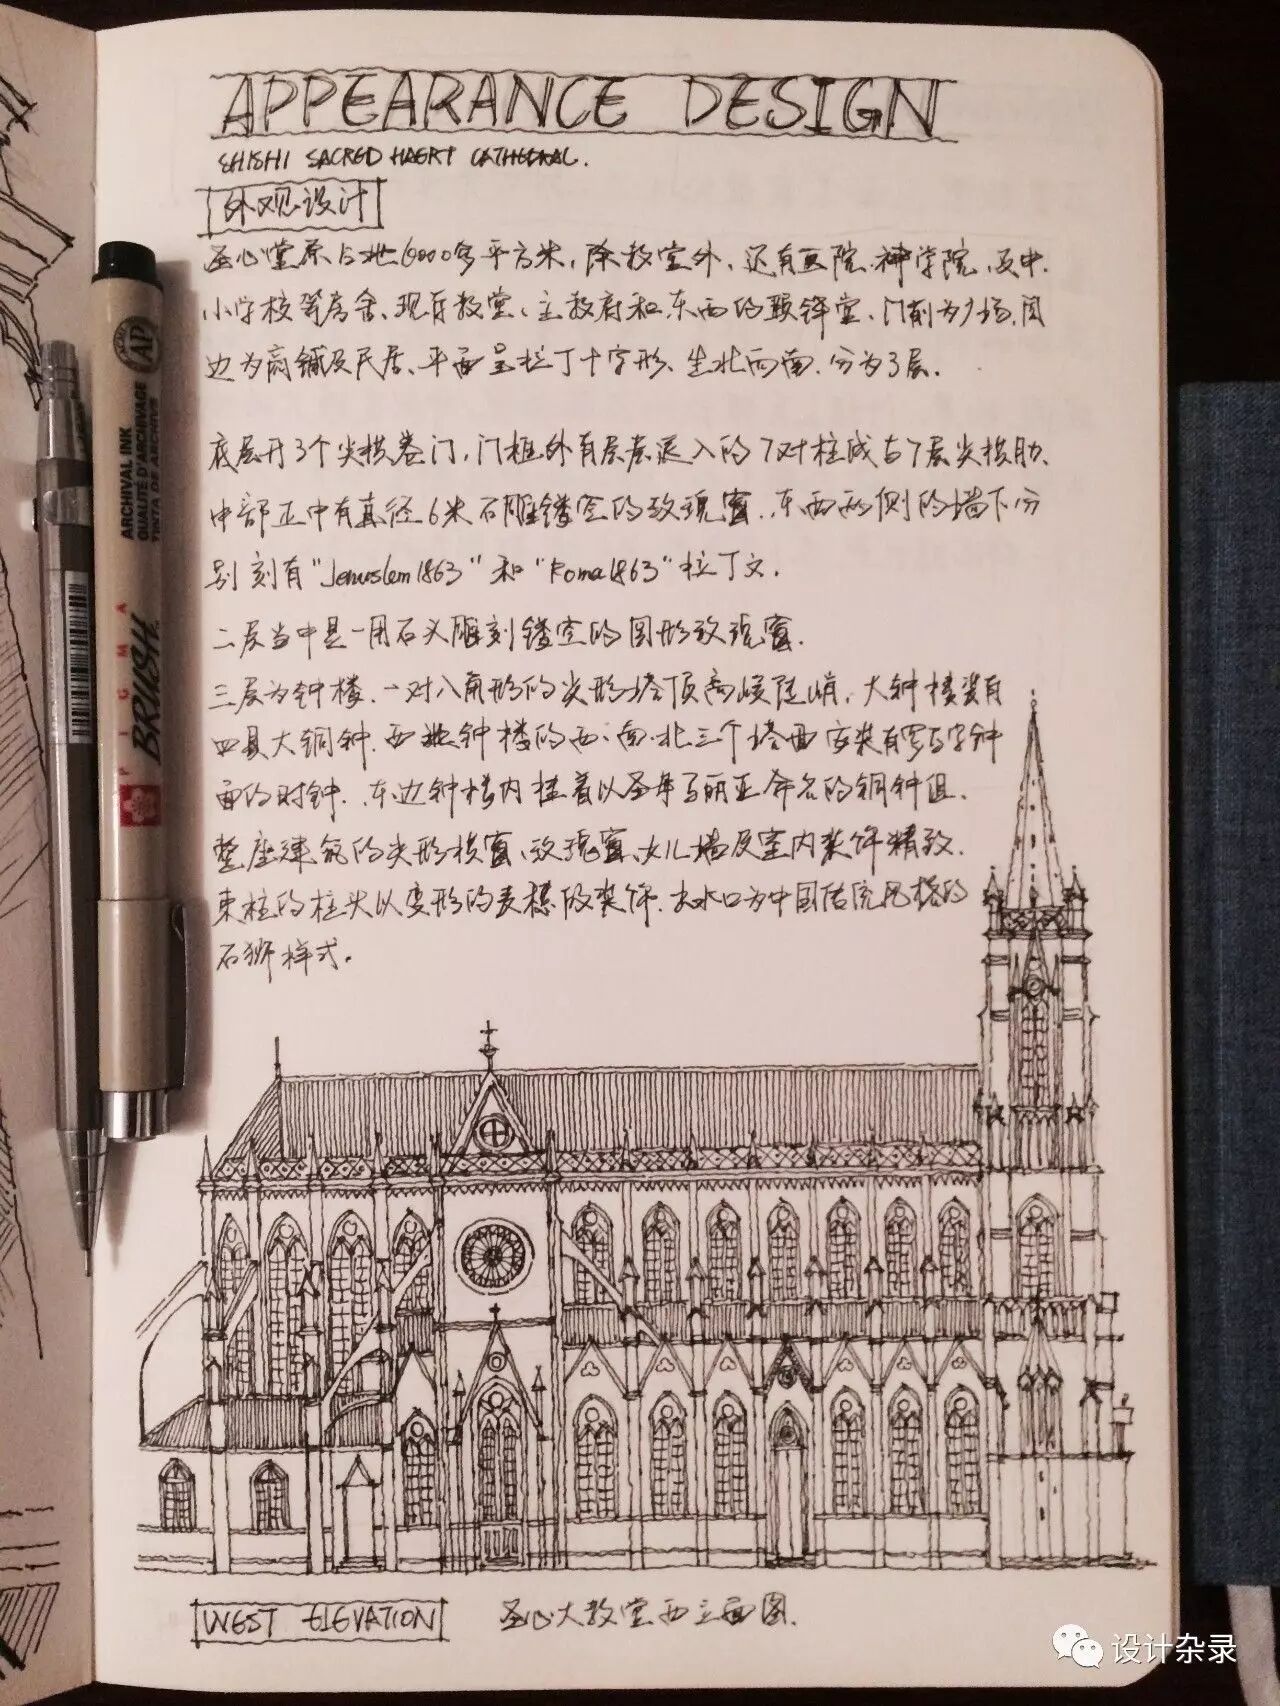 APPEARANCE DESIGN
SHISHI SACRED HAERT CATHEDRAL.
外观设计
圣心堂原占地6000多平方米,除教堂外、还有医院、神学院、及中、
小学校等房舍、现存教堂、主教府和东西的颐铎堂、门前为广场,周
边为商铺及民居、平面呈拉丁十字形、坐北向南、分为3层.
底层开3个尖拱卷门,门框外有层层退入的7对柱成古7层尖拱肋、
中部正中有直径6米石雕镂空的玫瑰窗、东西两侧的墙下分
别刻有"Jeruslem1863"和"Roma1863"拉丁文.
二层当中是一用石头雕刻镂空的圆形玫瑰窗.
三层为钟楼、一对八角形的尖形塔顶高峻陡峭,大钟楼装有
四具大铜钟、西边钟楼的西、南、北三个塔面安装有罗马字钟
面的时钟、东边钟楼内挂着以圣母马丽亚命名的铜钟组.
整座建筑的尖形拱窗、玫瑰窗、女儿墙及室内装饰精致.
束柱的柱头以变形的麦穗做装饰、去水口为中国传统风格的
石狮样式.
WEST ELEVATION
圣心大教堂西立面图.
ARCHIVAL INK
QUALITÉ D'ARCHIVAGE
TINTA DE ARCHIVO
AP
PIGMA
BRUSH
设计杂录